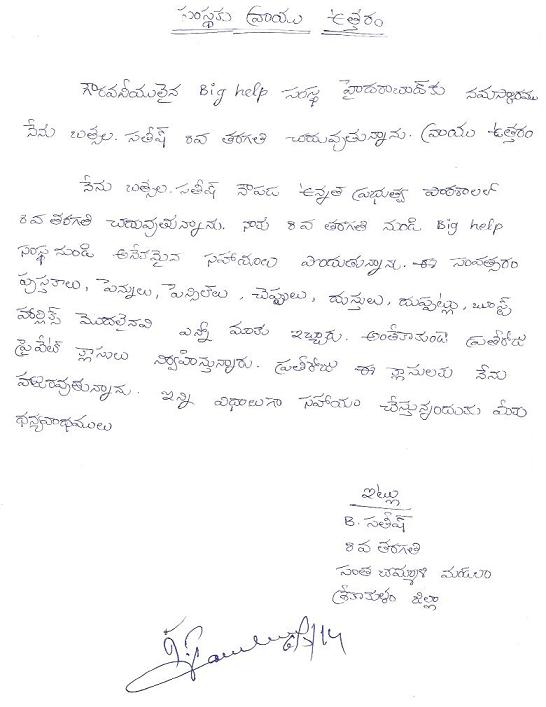 సంస్థకు వ్రాయు ఉత్తరం
గౌరవనీయులైన Big help సంస్థ హైదరాబాద్‌కు నమస్కారము
నేను బత్సల. సతీష్ 8వ తరగతి చదువుతున్నాను. వ్రాయు ఉత్తరం
నేను బత్సల. సతీష్ నౌపడ ఉన్నత ప్రభుత్వ పాఠశాలలో
8వ తరగతి చదువుతున్నాను. నాకు 8వ తరగతి నుండి Big help
సంస్థ నుండి అనేకమైన సహాయాలు పొందుతున్నాను. ఈ సంవత్సరం
పుస్తకాలు, పెన్నులు, పెన్సిలలు, చెప్పులు, దుస్తులు, దుప్పట్లు, బూస్ట్
హార్లిక్స్ మొదలైనవి ఎన్నో మాకు ఇచ్చారు. అంతేకాకుండా ప్రతీరోజు
ప్రైవేట్ క్లాసులు నిర్వహిస్తున్నారు. ప్రతీరోజు ఈ క్లాసులకు నేను
హాజరవుతున్నాను. ఇన్ని విధాలుగా సహాయం చేస్తున్నందుకు మీకు
ధన్యవాదములు
ఇట్లు
B. సతీష్
8వ తరగతి
సంత బొమ్మాళి మండలం
శ్రీకాకుళం జిల్లా